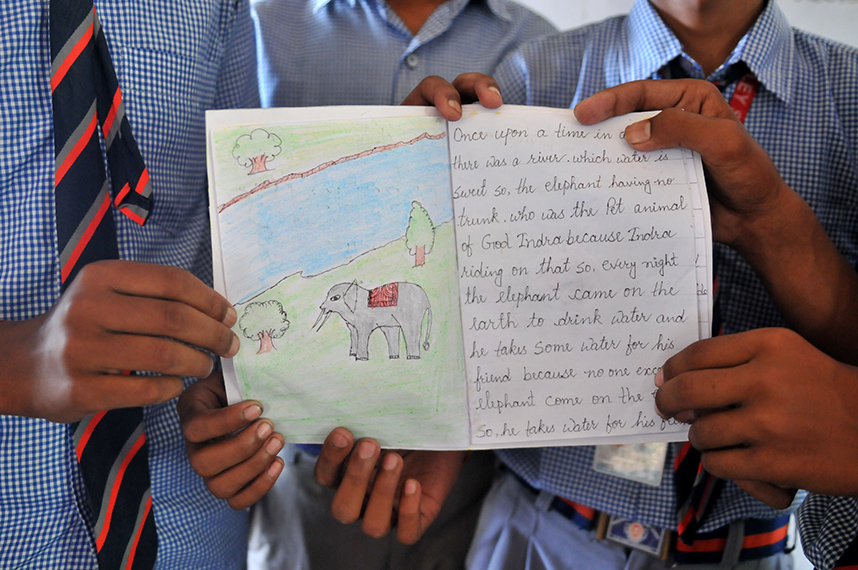 Once upon a time in a
there was a river. which water is
sweet so, the elephant having no
trunk. who was the Pet animal
of God Indra because Indra
riding on that so, every night
the elephant came on the
earth to drink water and
he takes some water for his
friend because no one
elephant come on the
So, he takes water for his
KEY